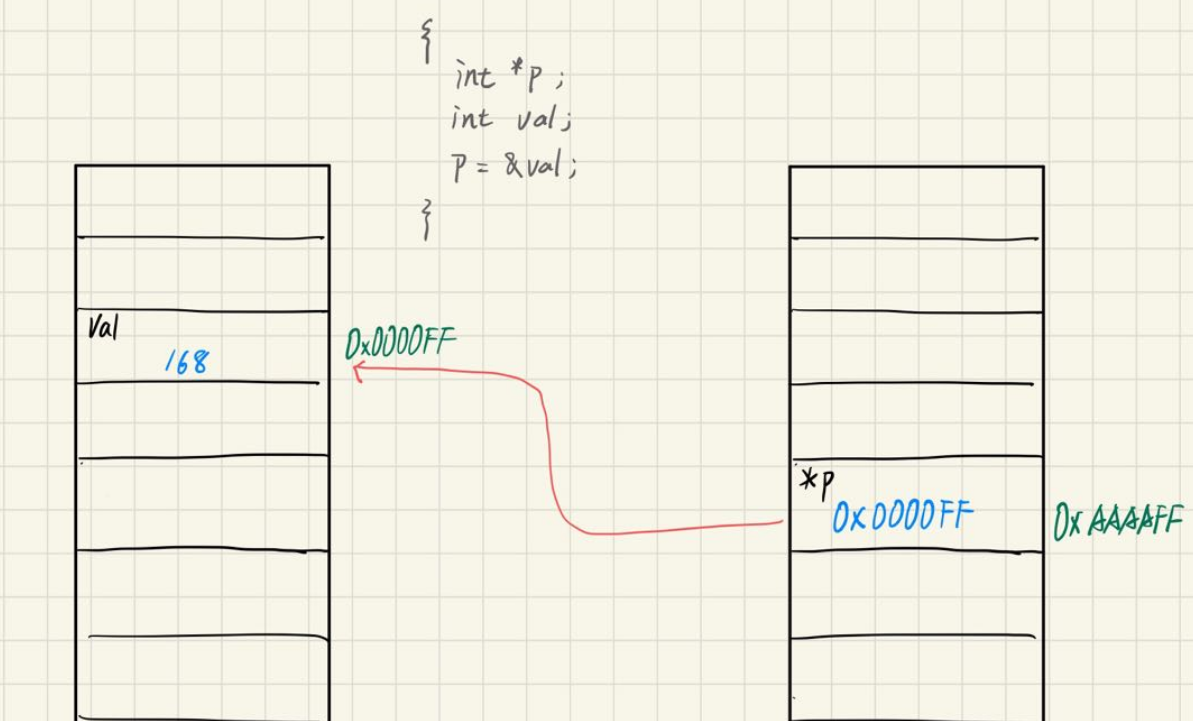 {
int *p;
int val;
p = &val;
}
Val
168
0x0000FF
*p
0x0000FF
0xAAAAFF